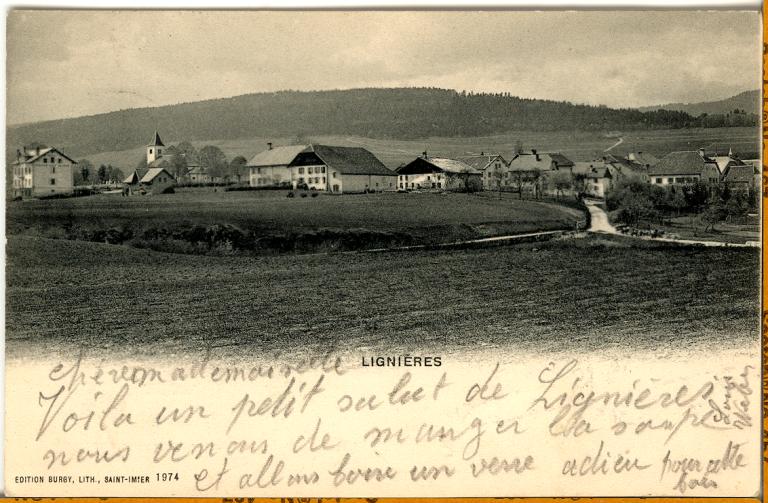 LIGNIÈRES
Chère mademoiselle
Voilà un petit salut de Lignières
nous venons de manger la soupe
et allons boire un verre adieu pour cette
fois
EDITION BURGY, LITH., SAINT-IMIER 1974